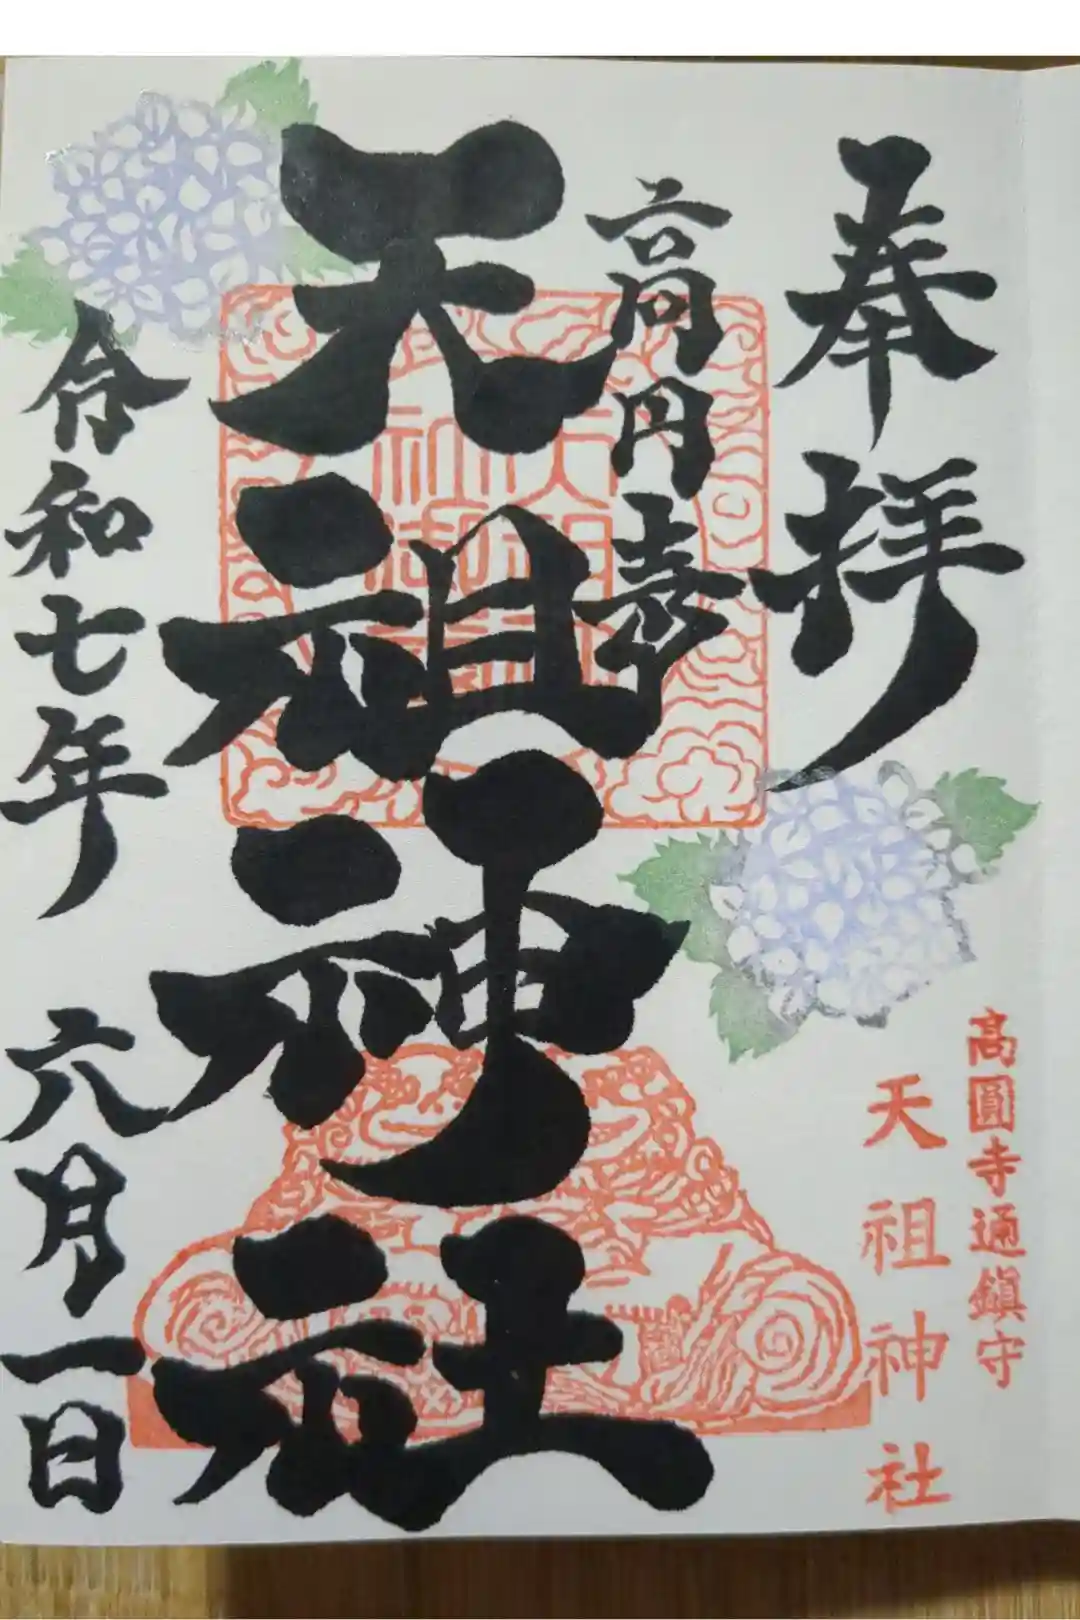 奉拝
高円寺
天祖神社
令和七年 六月一日
高圓寺通鎮守
天祖神社